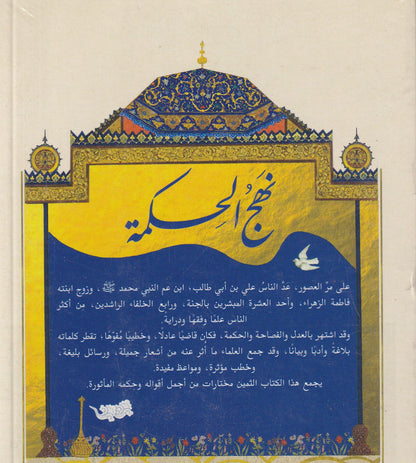 نهج الحكمة
على مرّ العصور، عدّ الناسُ علي بن أبي طالب، ابن عم النبي محمد ﷺ، وزوج ابنته
فاطمة الزهراء، وأحد العشرة المبشرين بالجنة، ورابع الخلفاء الراشدين، من أكثر
الناس علمًا وفقهًا ودراية
وقد اشتهر بالعدل والفصاحة والحكمة، فكان قاضيًا عادلًا، وخطيبًا مُفوّهًا، تقطر كلماته
بلاغة وأدبًا وبيانًا، وقد جمع العلماء ما أثر عنه من أشعار جميلة، ورسائل بليغة،
وخطب مؤثرة، ومواعظ مفيدة.
يجمع هذا الكتاب الثمين مختارات من أجمل أقواله وحكمه المأثورة.